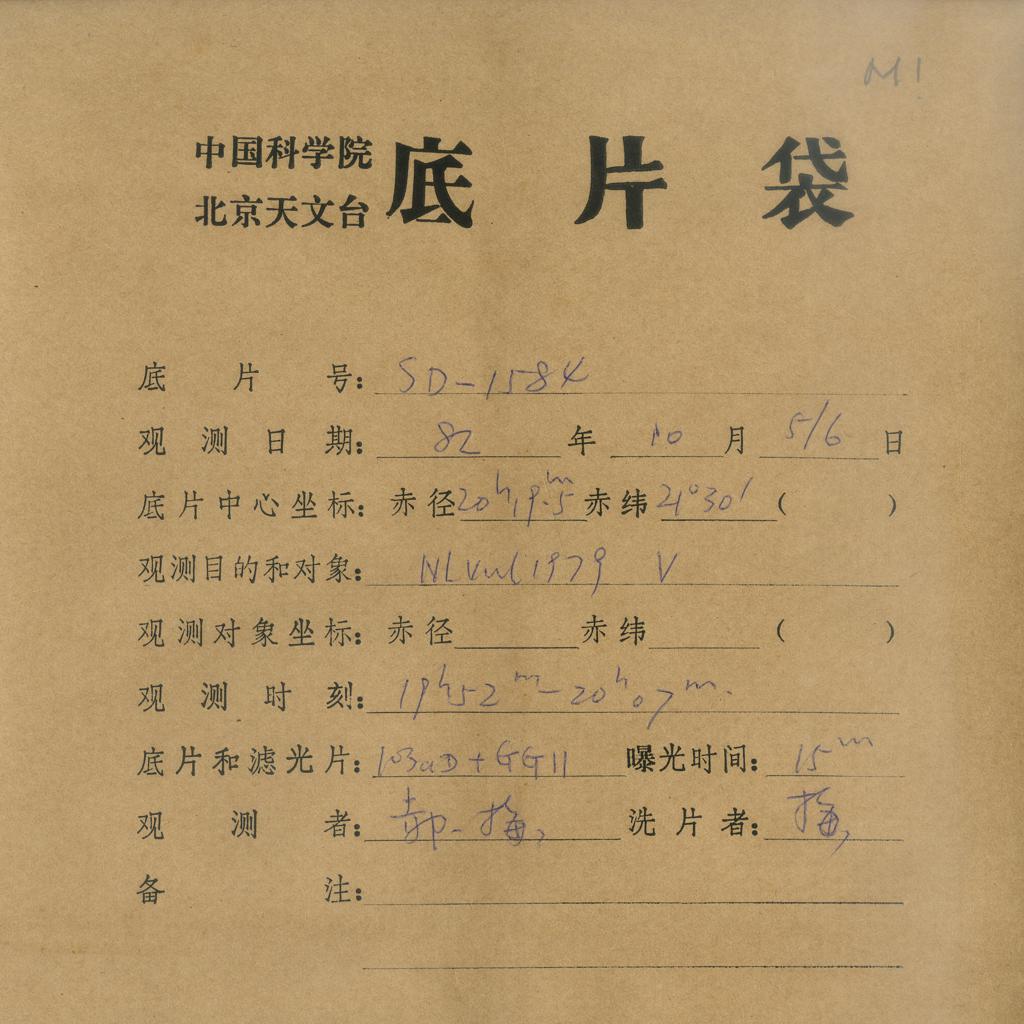 M1
中国科学院
北京天文台
底片袋
底片号: SD-1584
观测日期: 82 年 10 月 5/6 日
底片中心坐标: 赤径 20h19m.5 赤纬 21°30′ ( )
观测目的和对象: N1 Vul 1979 V
观测对象坐标: 赤径 赤纬 ( )
观测时刻: 19h52m-20h07m.
底片和滤光片: 103aD+GG11 曝光时间: 15m
观测者: 洗片者:
备注: